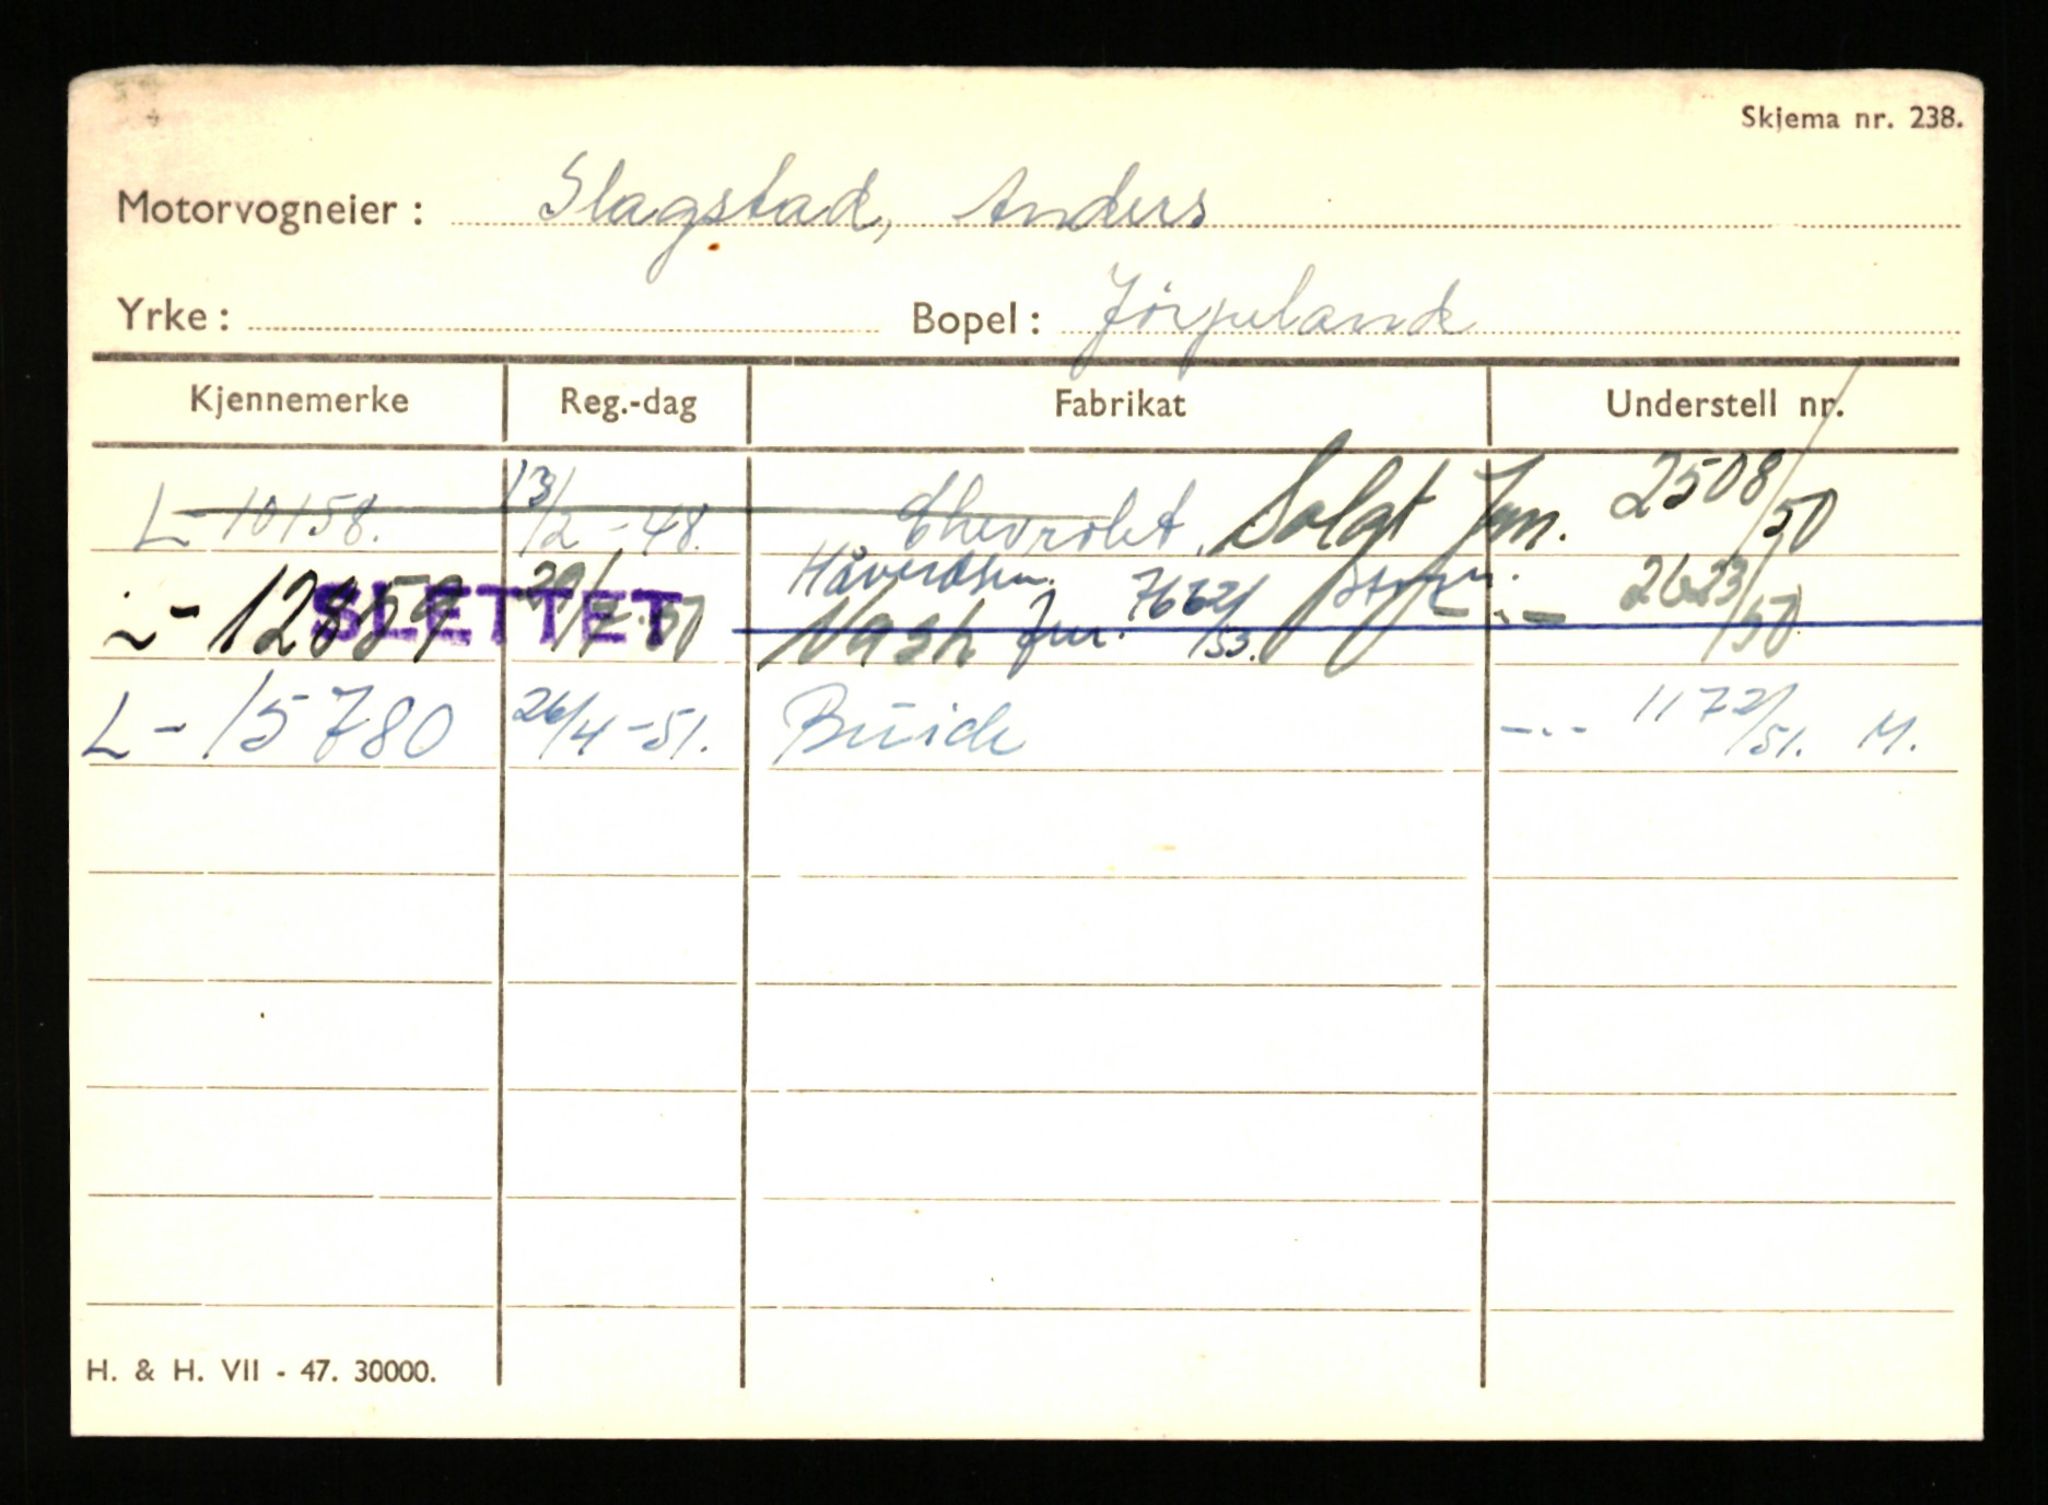 Skjema nr. 238.
Motorvogneier: Slagstad, Anders
Yrke: Bopel: Jørpeland
Kjennemerke Reg.-dag Fabrikat Understell nr.
L-10158. 13/2-48. Chevrolet. Solgt Jnr. 2508/50
Håverdsen.
-12859 SLETTET Nash Jnr. 7662/53. 2623/50
L-15780 26/4-51. Buick -..- 1172/51. M.
H. & H. VII - 47. 30000.